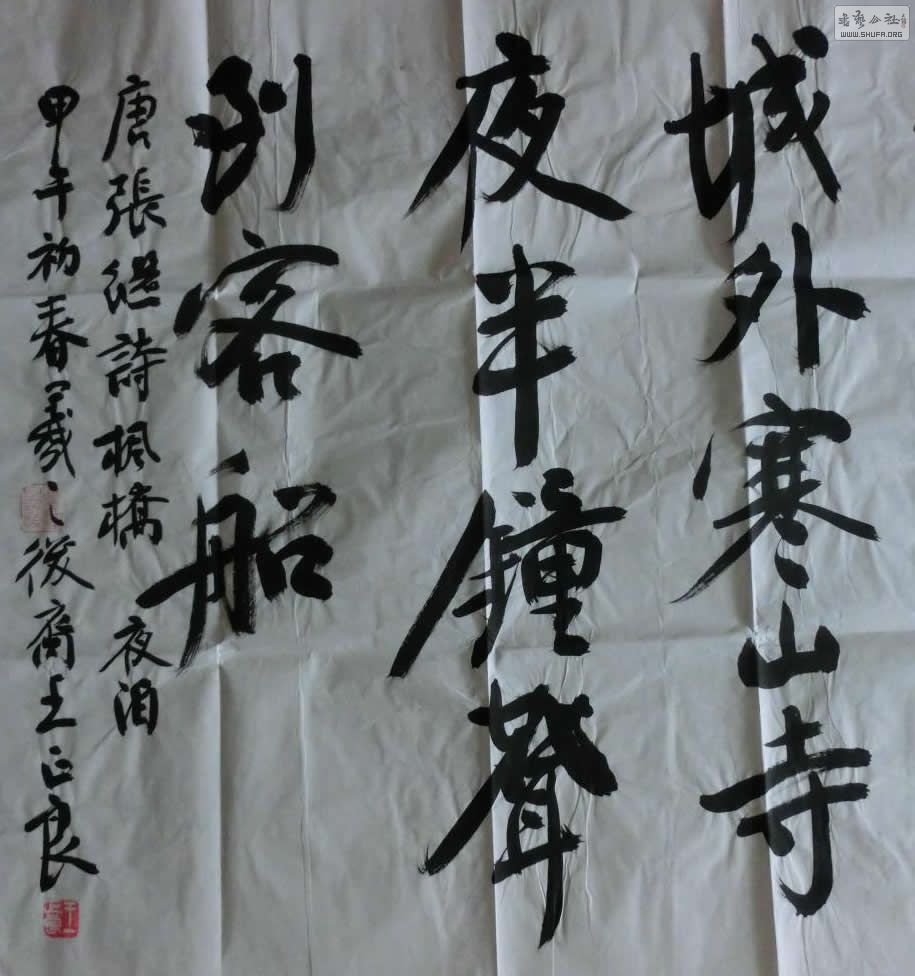 城外寒山寺
夜半鐘聲
到客船
唐張継詩楓橋夜泊
甲午初春羲之後裔王正良
WWW.SHUFA.ORG